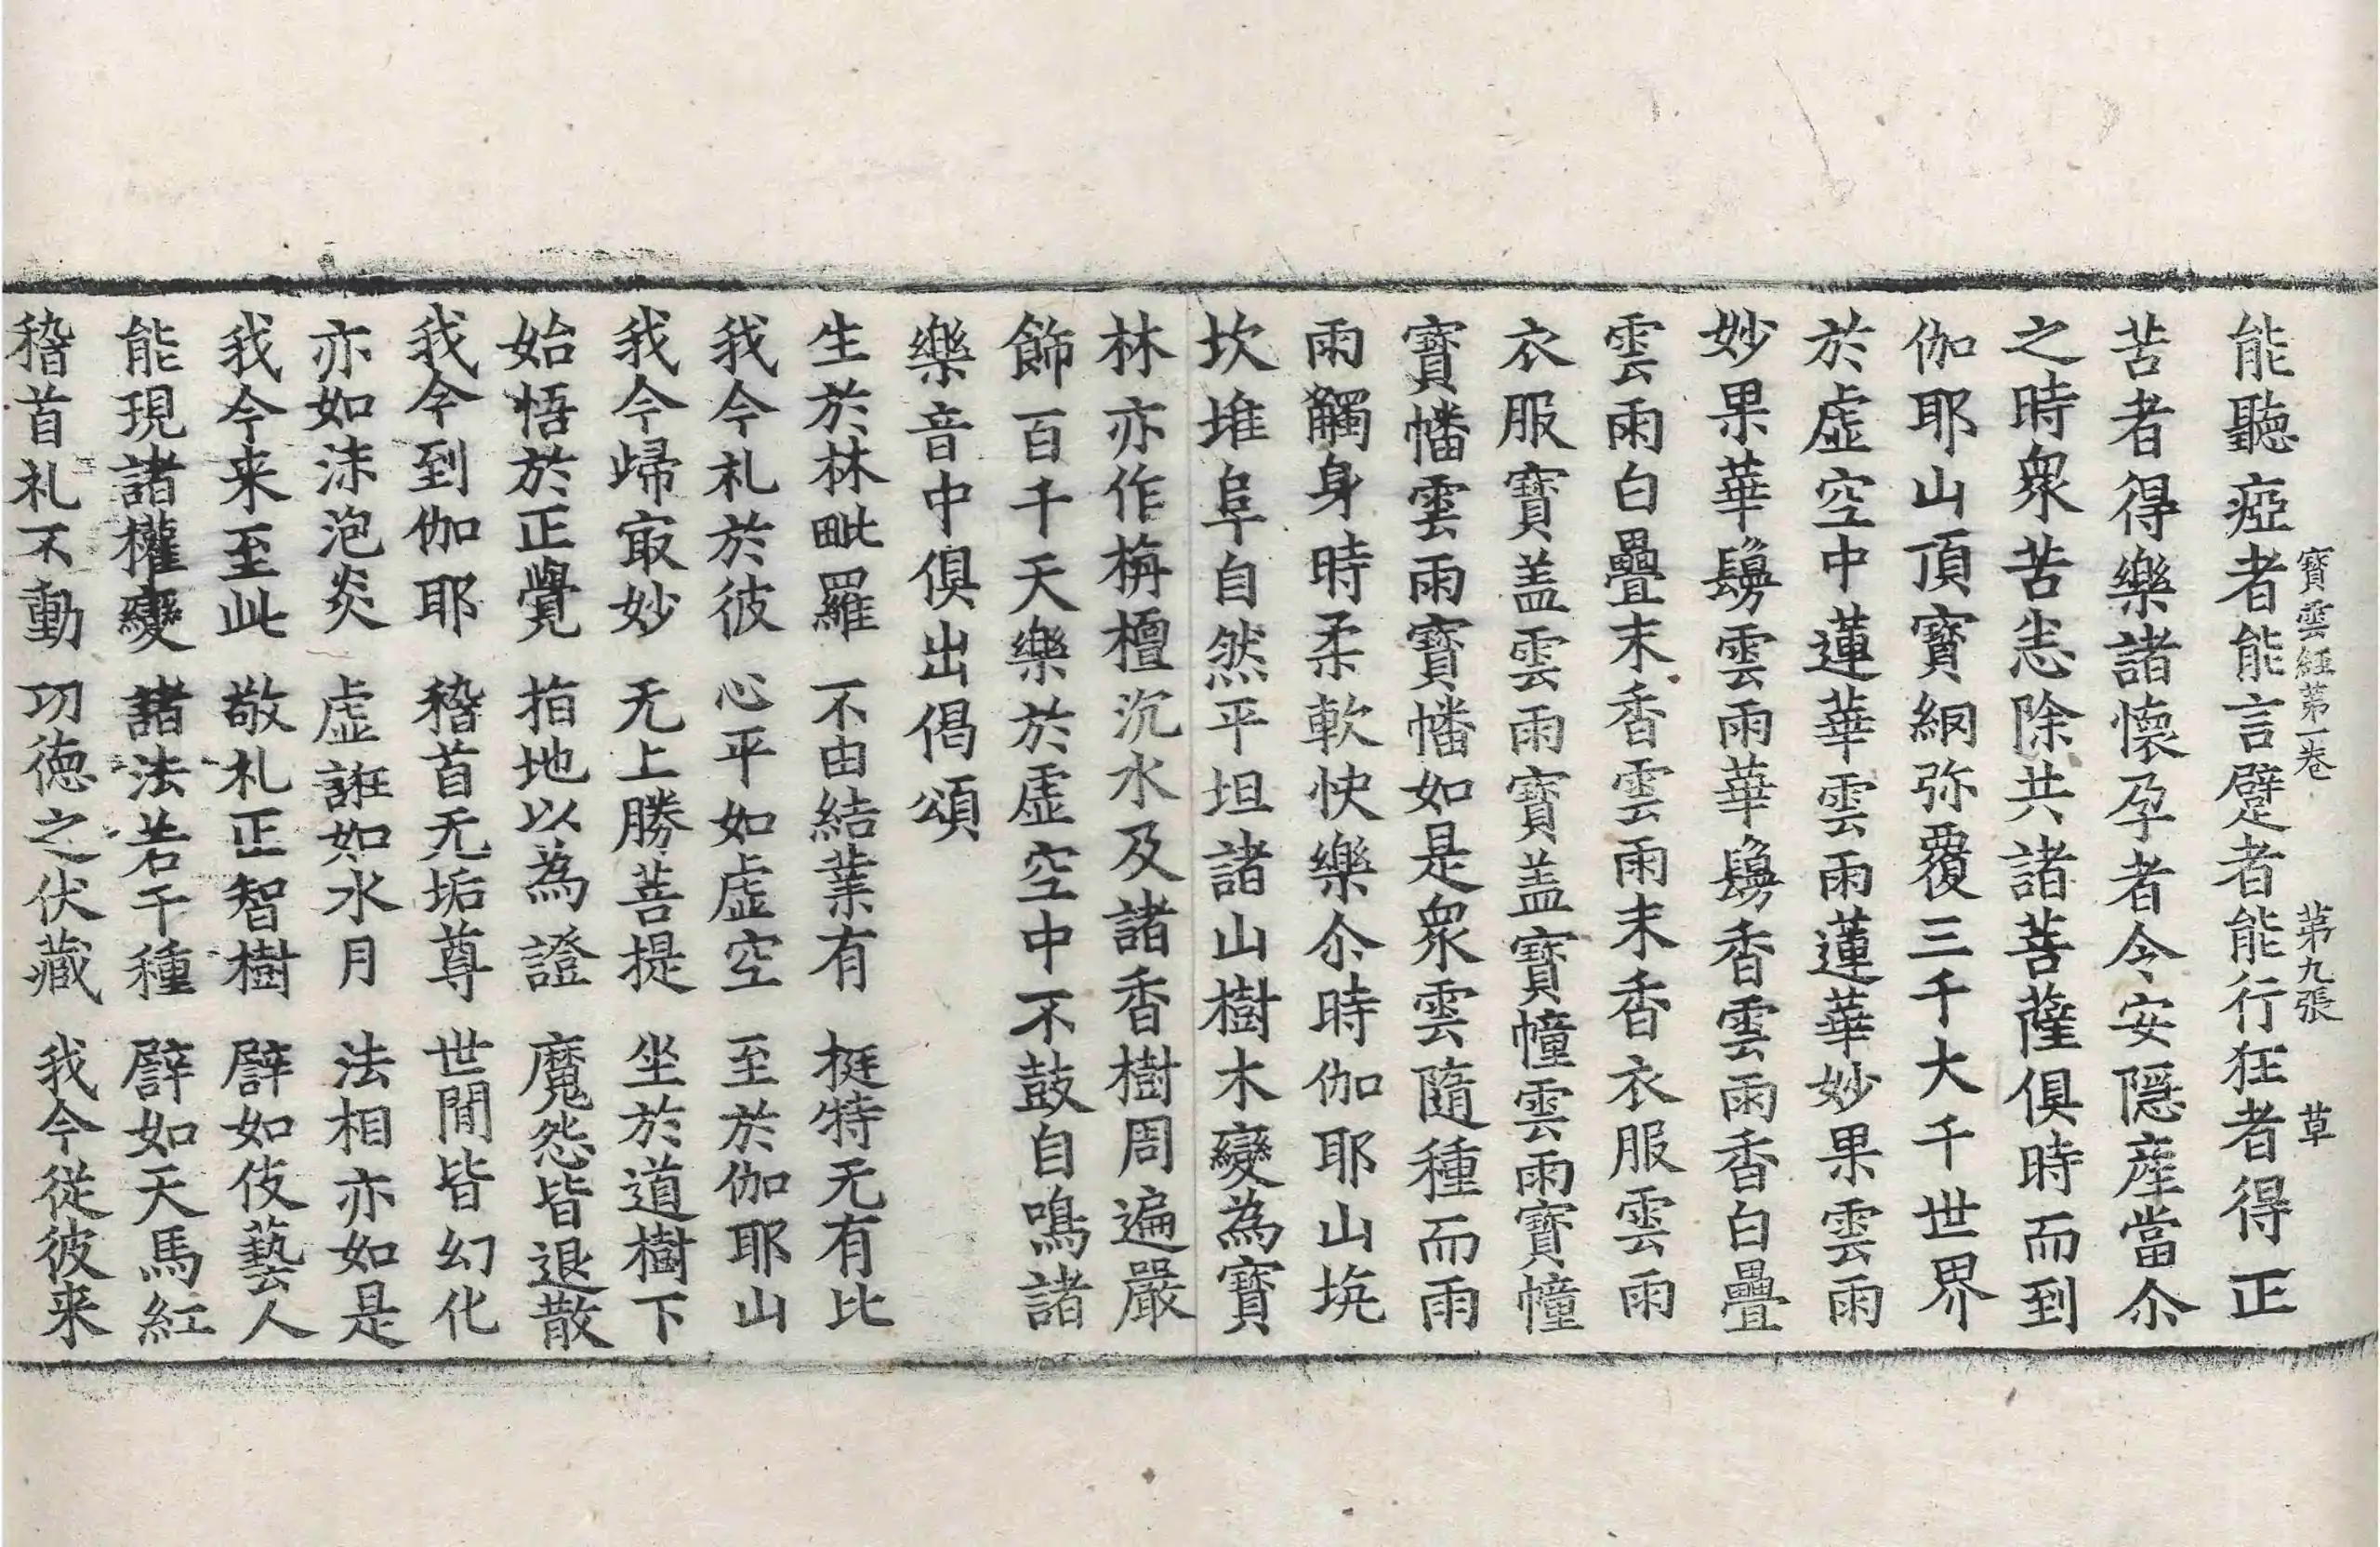 寶雲經第一卷　第九張　草
能聽瘂者能言躄者能行狂者得正
苦者得樂諸懷孕者今安隱產當尒
之時衆苦悉除共諸菩薩俱時而到
伽耶山頂寶網弥覆三千大千世界
於虛空中蓮華雲雨蓮華妙果雲雨
妙果華鬘雲雨華鬘香雲雨香白疊
雲雨白疊末香雲雨末香衣服雲雨
衣服寶盖雲雨寶盖寶幢雲雨寶幢
寶幡雲雨寶幡如是衆雲隨種而雨
雨觸身時柔軟快樂尒時伽耶山埦
坎堆阜自然平坦諸山樹木變為寶
林亦作栴檀沉水及諸香樹周遍嚴
飾百千天樂於虛空中不鼓自鳴諸
樂音中俱出偈頌
生於林毗羅　不由結業有　挺特无有比
我今礼於彼　心平如虛空　至於伽耶山
我今歸㝡妙　无上勝菩提　坐於道樹下
始悟於正覺　指地以為證　魔怨皆退散
我今到伽耶　稽首无垢尊　世閒皆幻化
亦如沫泡炎　虛誑如水月　法相亦如是
我今来至此　敬礼正智樹　譬如伎藝人
能現諸權變　諸法若干種　譬如天馬紅
稽首礼不動　功德之伏藏　我今從彼来